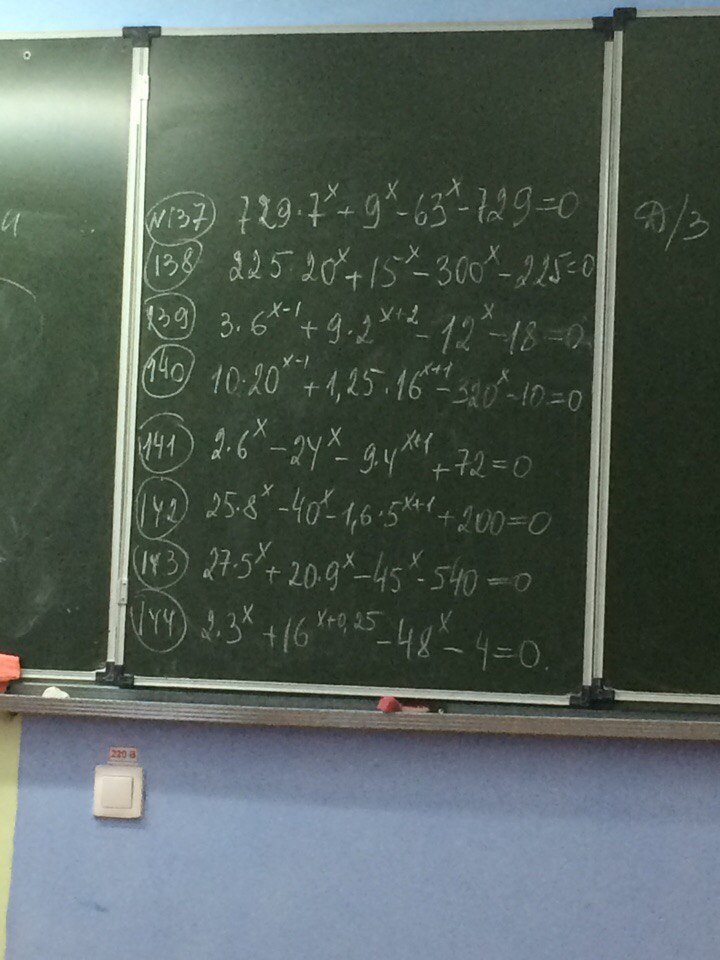 и
№137 729·7^x + 9^x - 63^x - 729 = 0
138 225·20^x + 15^x - 300^x - 225 = 0
139 3·6^(x-1) + 9·2^(x+2) - 12^x - 18 = 0
140 10·20^(x-1) + 1,25·16^(x+1) - 320^x - 10 = 0
141 2·6^x - 24^x - 9·4^(x+1) + 72 = 0
142 25·8^x - 40^x - 1,6·5^(x+1) + 200 = 0
143 27·5^x + 20·9^x - 45^x - 540 = 0
144 2·3^x + 16^(x+0,25) - 48^x - 4 = 0.
Д/З
220 В